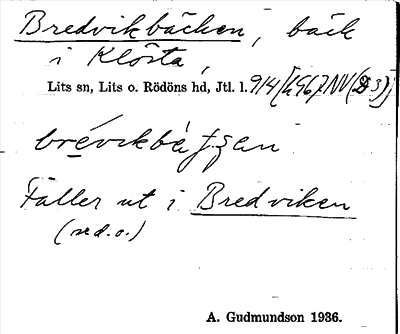 Bredvikbäcken, bäck
i Klösta,
Lits sn, Lits o. Rödöns hd, Jtl. l. 9/4
Faller ut i Bredviken
(se d. o.)
A. Gudmundson 1936.